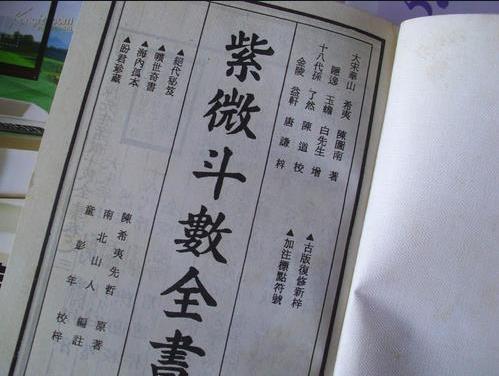 大宋華山 希夷 陳圖南 著
隱逸 玉蟾 白先生 增
十八代孫 了然 陳道 校
金陵 益軒 唐謙 梓
▲古版復修新梓
▲加注標點符號
紫微斗數全書
▲絕代秘笈
▲曠世奇書
▲海內孤本
▲盼君珍藏
陳希夷先哲 原著
南北山人 編註
董彭年 校梓